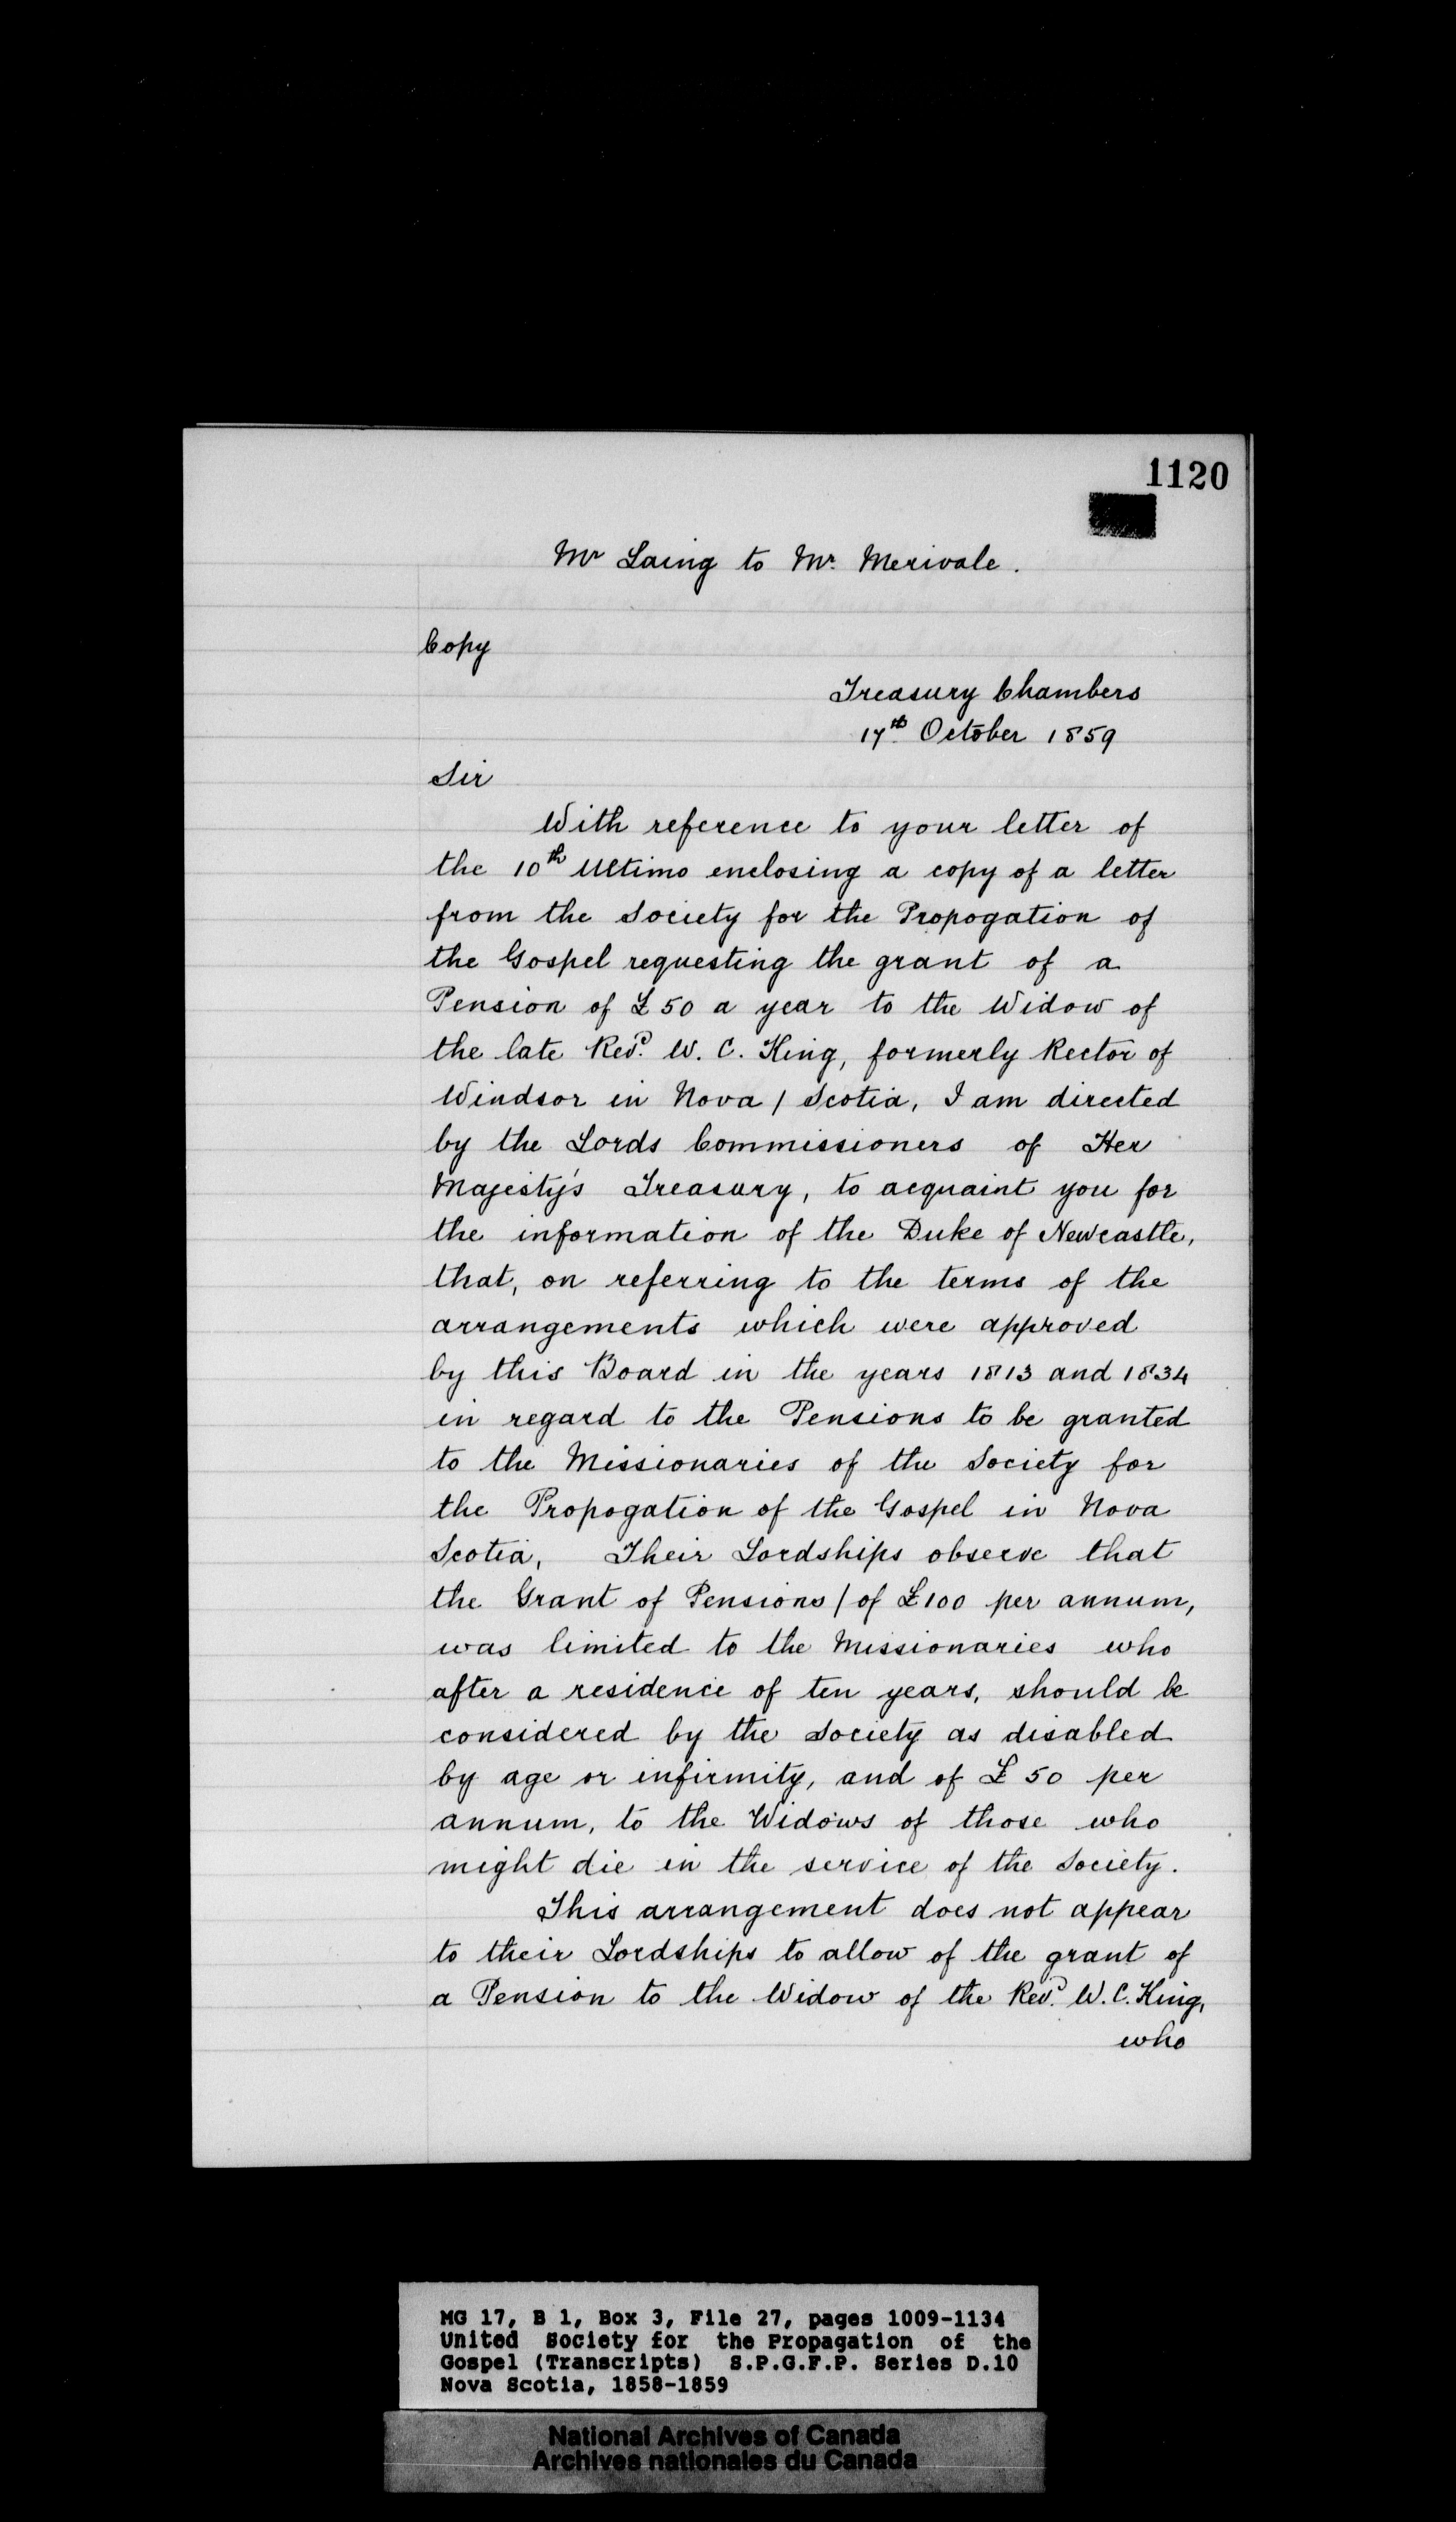 1120
Mr Laing to Mr. Merivale.
Copy
Treasury Chambers
17th October 1859
Sir
With reference to your letter of
the 10th Ultimo enclosing a copy of a letter
from the Society for the Propogation of
the Gospel requesting the grant of a
Pension of £50 a year to the Widow of
the late Revd. W. C. King, formerly Rector of
Windsor in Nova / Scotia, I am directed
by the Lords Commissioners of Her
Majesty's Treasury, to acquaint you for
the information of the Duke of Newcastle,
that, on referring to the terms of the
arrangements which were approved
by this Board in the years 1813 and 1834
in regard to the Pensions to be granted
to the Missionaries of the Society for
the Propogation of the Gospel in Nova
Scotia, Their Lordships observe that
the Grant of Pensions / of £100 per annum,
was limited to the Missionaries who
after a residence of ten years, should be
considered by the Society as disabled
by age or infirmity, and of £50 per
annum, to the Widows of those who
might die in the service of the Society.
This arrangement does not appear
to their Lordships to allow of the grant of
a Pension to the Widow of the Revd. W. C. King,
who
MG 17, B 1, Box 3, File 27, pages 1009-1134
United Society for the Propagation of the
Gospel (Transcripts) S.P.G.F.P. Series D.10
Nova Scotia, 1858-1859
National Archives of Canada
Archives nationales du Canada